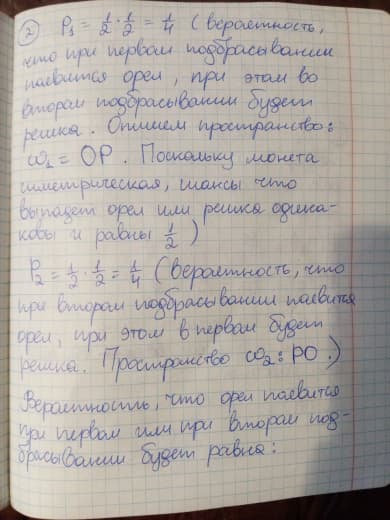 2) P₁ = 1/2 · 1/2 = 1/4 (вероятность,
что при первом подбрасывании
появится орел, при этом во
втором подбрасывании будет
решка. Опишем пространство:
ω₁ = ОР. Поскольку монета
симетрическая, шансы что
выпадет орел или решка одина-
ковы и равны 1/2)
P₂ = 1/2 · 1/2 = 1/4 (вероятность, что
при втором подбрасывании появится
орел, при этом в первом будет
решка. Пространство ω₂: РО.)
Вероятность, что орел появится
при первом или при втором под-
брасывании будет равна: